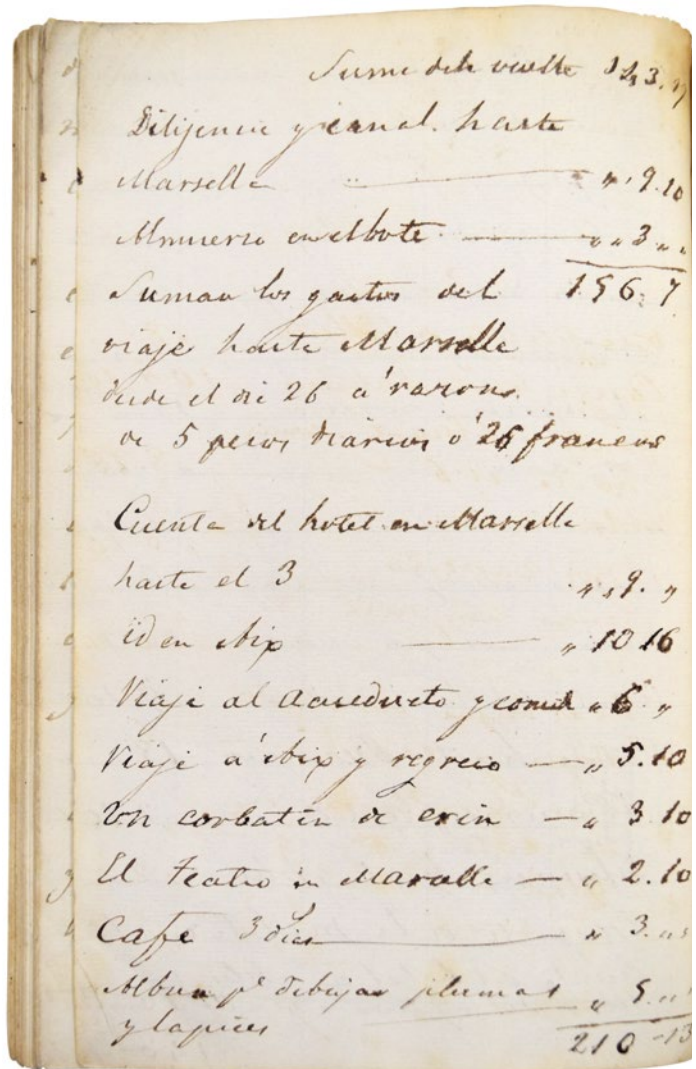 Suma dela vuelta 143.17
Dilijencia y canal hasta
Marsella " 9.10
Almuerzo en el bote " " 3 " "
Suman los gastos del 156. 7
viaje hasta Marsella
desde el dia 26 a' razon
de 5 pesos diarios o' 26 francos
Cuenta del hotel en Marsella
haste el 3 " " 9. "
id en Aix " 10 16
Viaje al Acueducto y comid " 6 "
Viaje a' Aix y regreso — " 5.10
Un corbatin de crin — " 3 10
El teatro in Marsella — " 2.10
Cafe 3 dias " 3. " "
Album pa dibujar plumas " 5. " "
y lapices 210 - 13